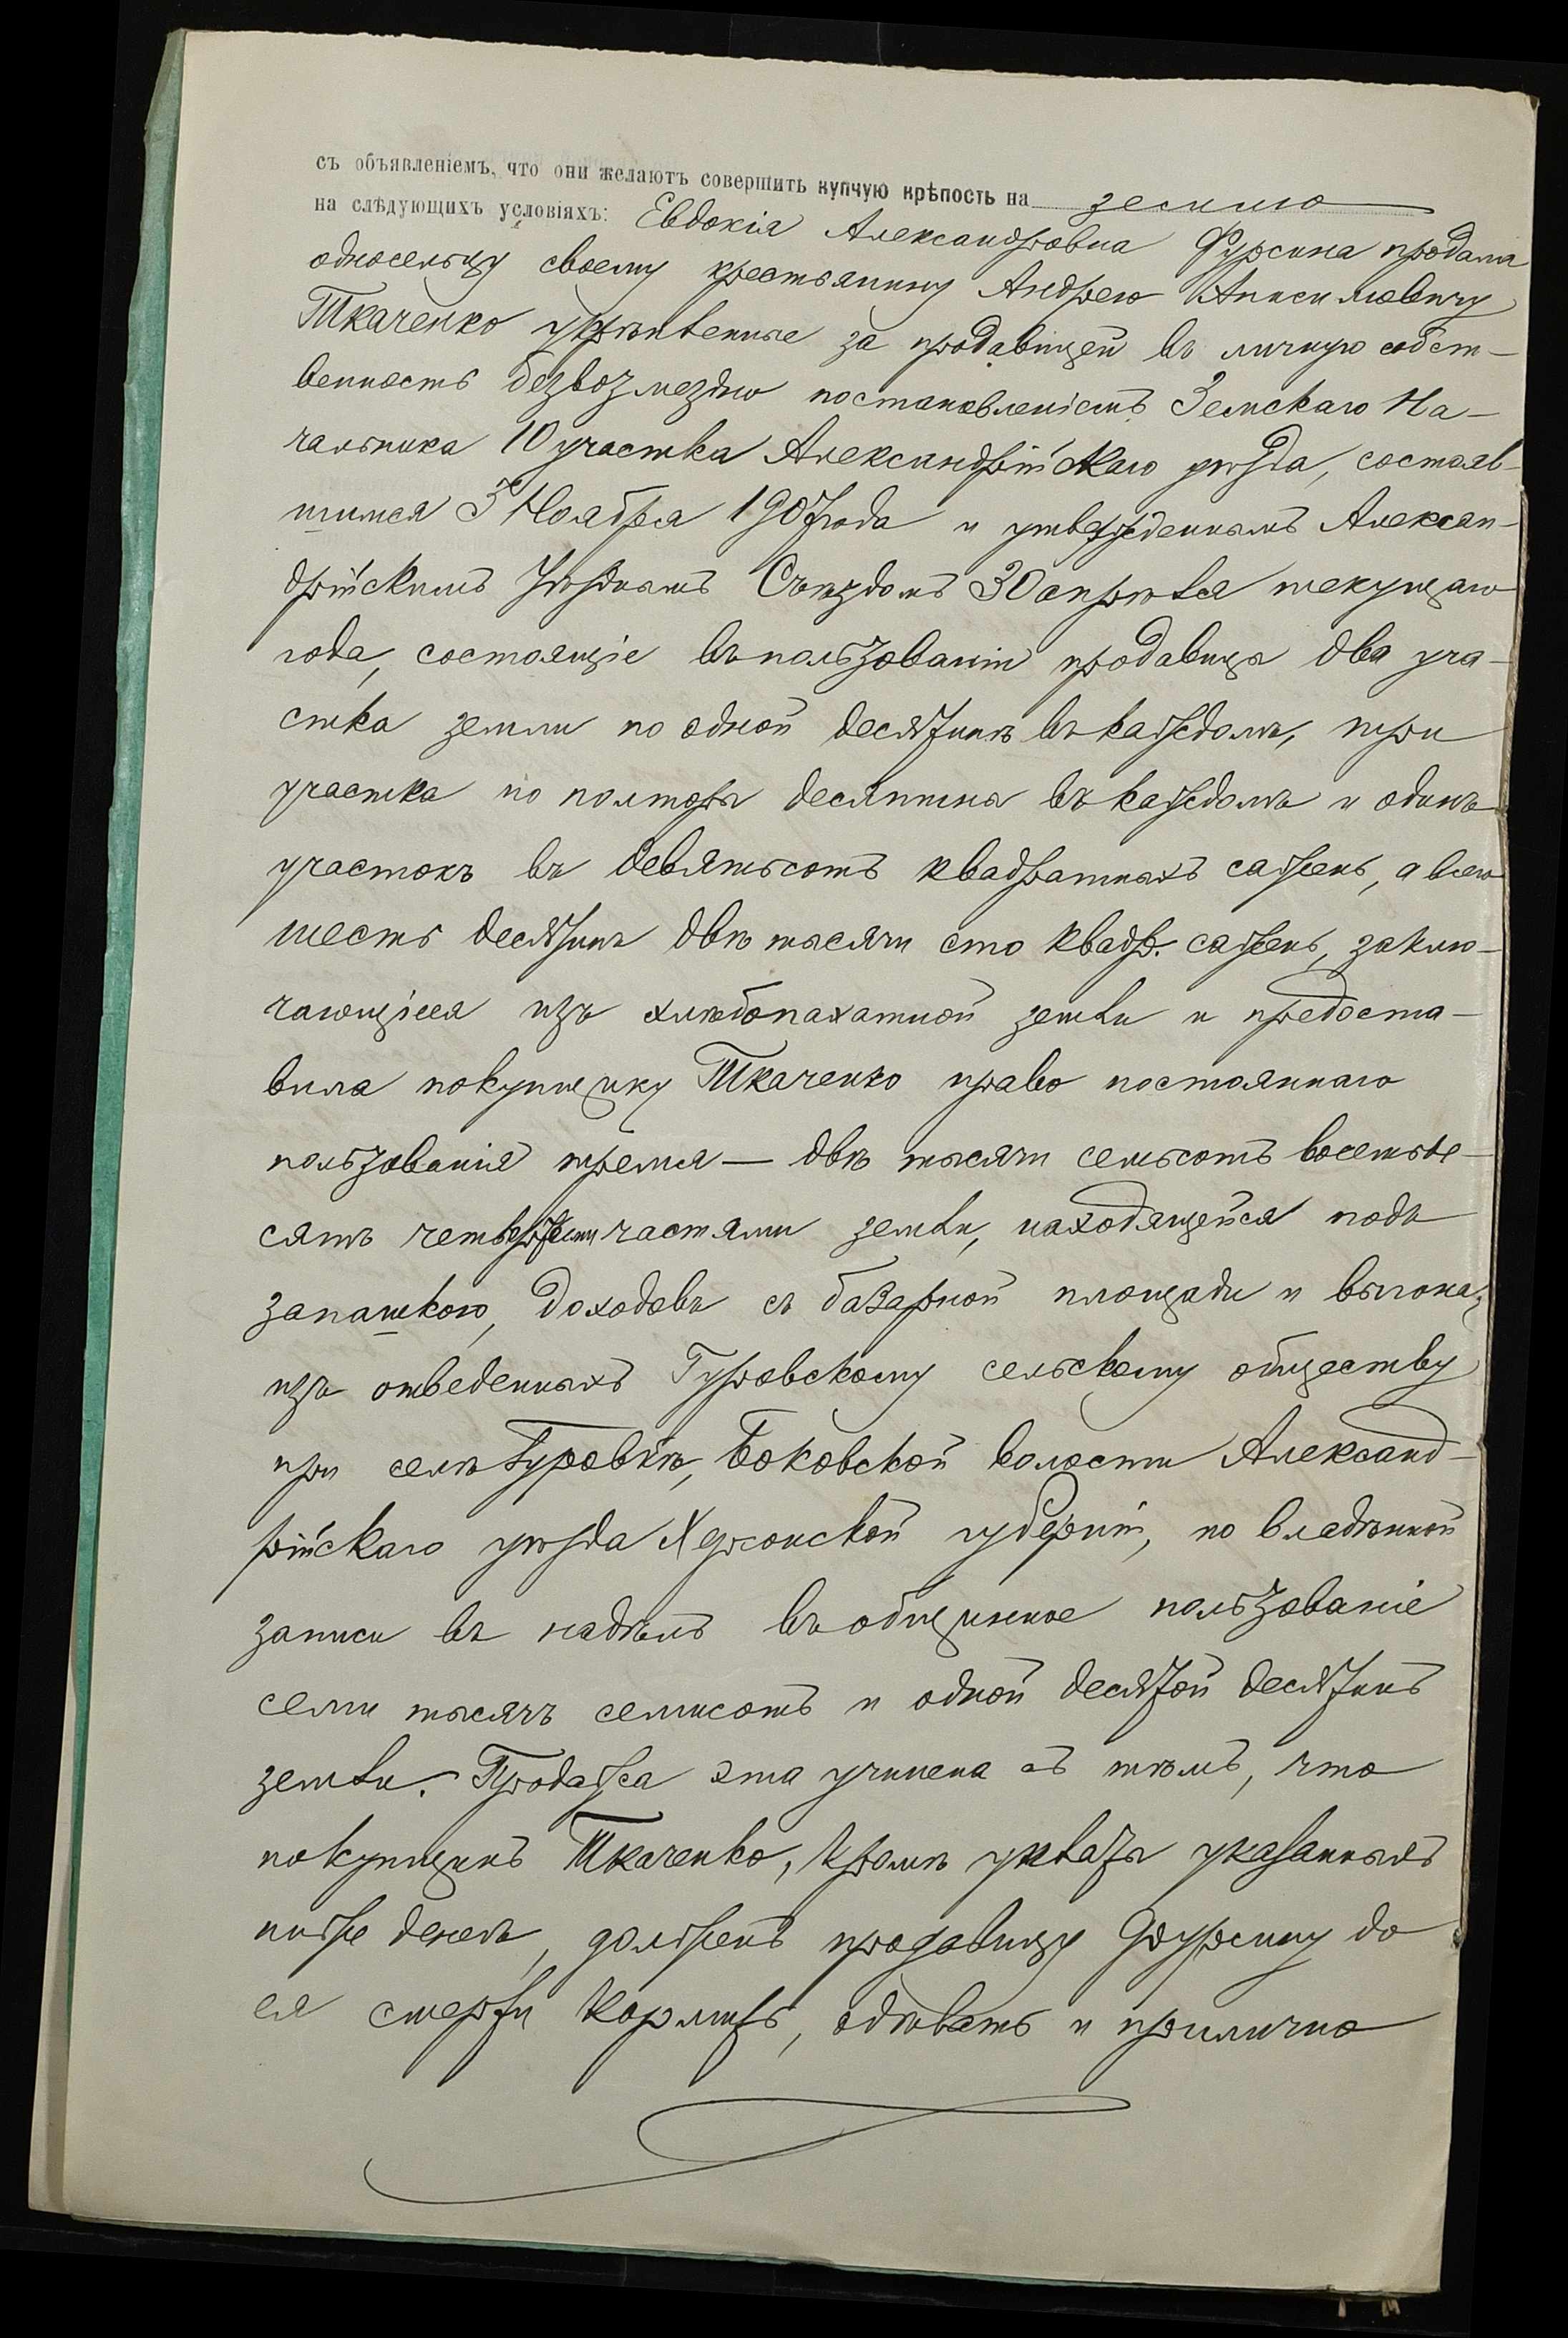 съ объявленіемъ, что они желаютъ совершить купчую крѣпость на землю
на слѣдующихъ условіяхъ: Евдокія Александровна Фурсина продала
односельцу своему крестьянину Андрею Анисимовичу
Ткаченко укрѣпленные за продавщей въ личную собст-
венность безвозмездно постановленіемъ Земскаго На-
чальника 10 участка Александрійскаго уѣзда, состояв-
шимся 3 Ноября 1907 года и утвержденнымъ Алексан-
дрійскимъ Уѣзднымъ Съѣздомъ 30 апрѣля текущаго
года, состоящіе въ пользованіи продавицы два уча-
стка земли по одной десятинѣ въ каждомъ, три
участка по полторы десятины въ каждомъ и одинъ
участокъ въ девятьсотъ квадратныхъ сажень, а всего
шесть десятинъ двѣ тысячи сто квадр. сажень, заклю-
чающіеся изъ хлѣбопахатной земли и предоста-
вила покупщику Ткаченко право постояннаго
пользованія тремя — двѣ тысячи семьсотъ восемьде-
сятъ четвертыми частями земли, находящейся подъ
запашкою, доходовъ съ базарной площади и выгона,
изъ отведенныхъ Гуровскому сельскому обществу
при селѣ Гуровкѣ, Боковской волости Александ-
рійскаго уѣзда Херсонской губерніи, по владѣнной
записи въ надѣлъ въ общинное пользованіе
семи тысячъ семисотъ и одной десятой десятинъ
земли. Продажа эта учинена съ тѣмъ, что
покупщикъ Ткаченко, кромѣ уплаты указанныхъ
ниже денегъ, долженъ продавицу Фурсину до
ея смерти кормить, одѣвать и прилично